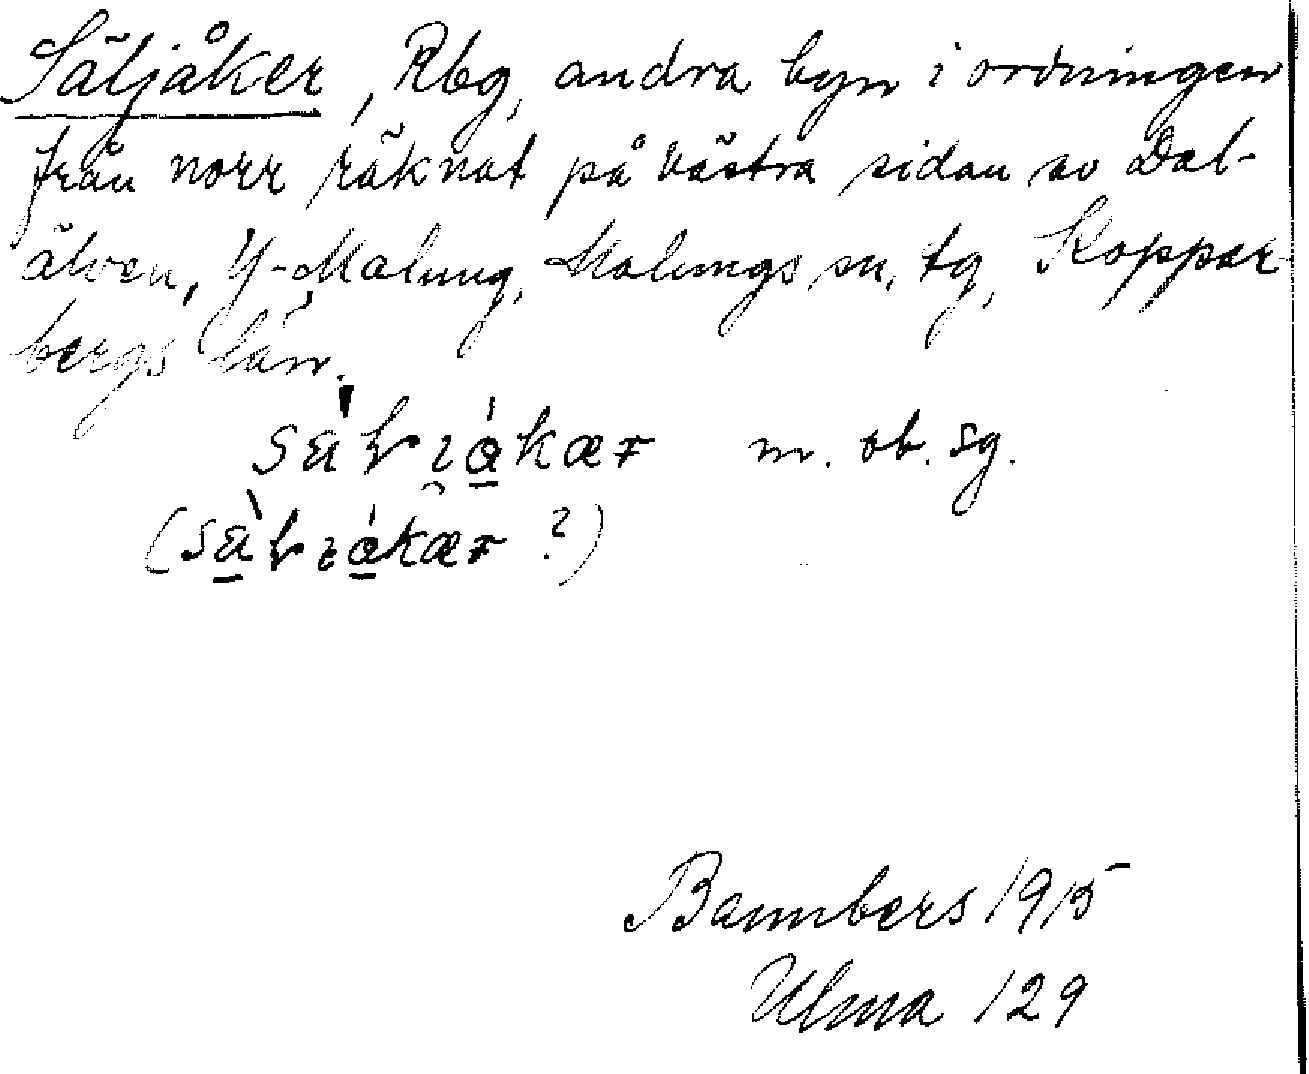 Säljåker, Rbg, andra byn i ordningen
från norr räknat på västra sidan av Dal-
älven, Y-Malung, Malungs sn, tg, Koppar-
bergs län.
m. ob. sg.
Bannbers 1915
Ulma 129